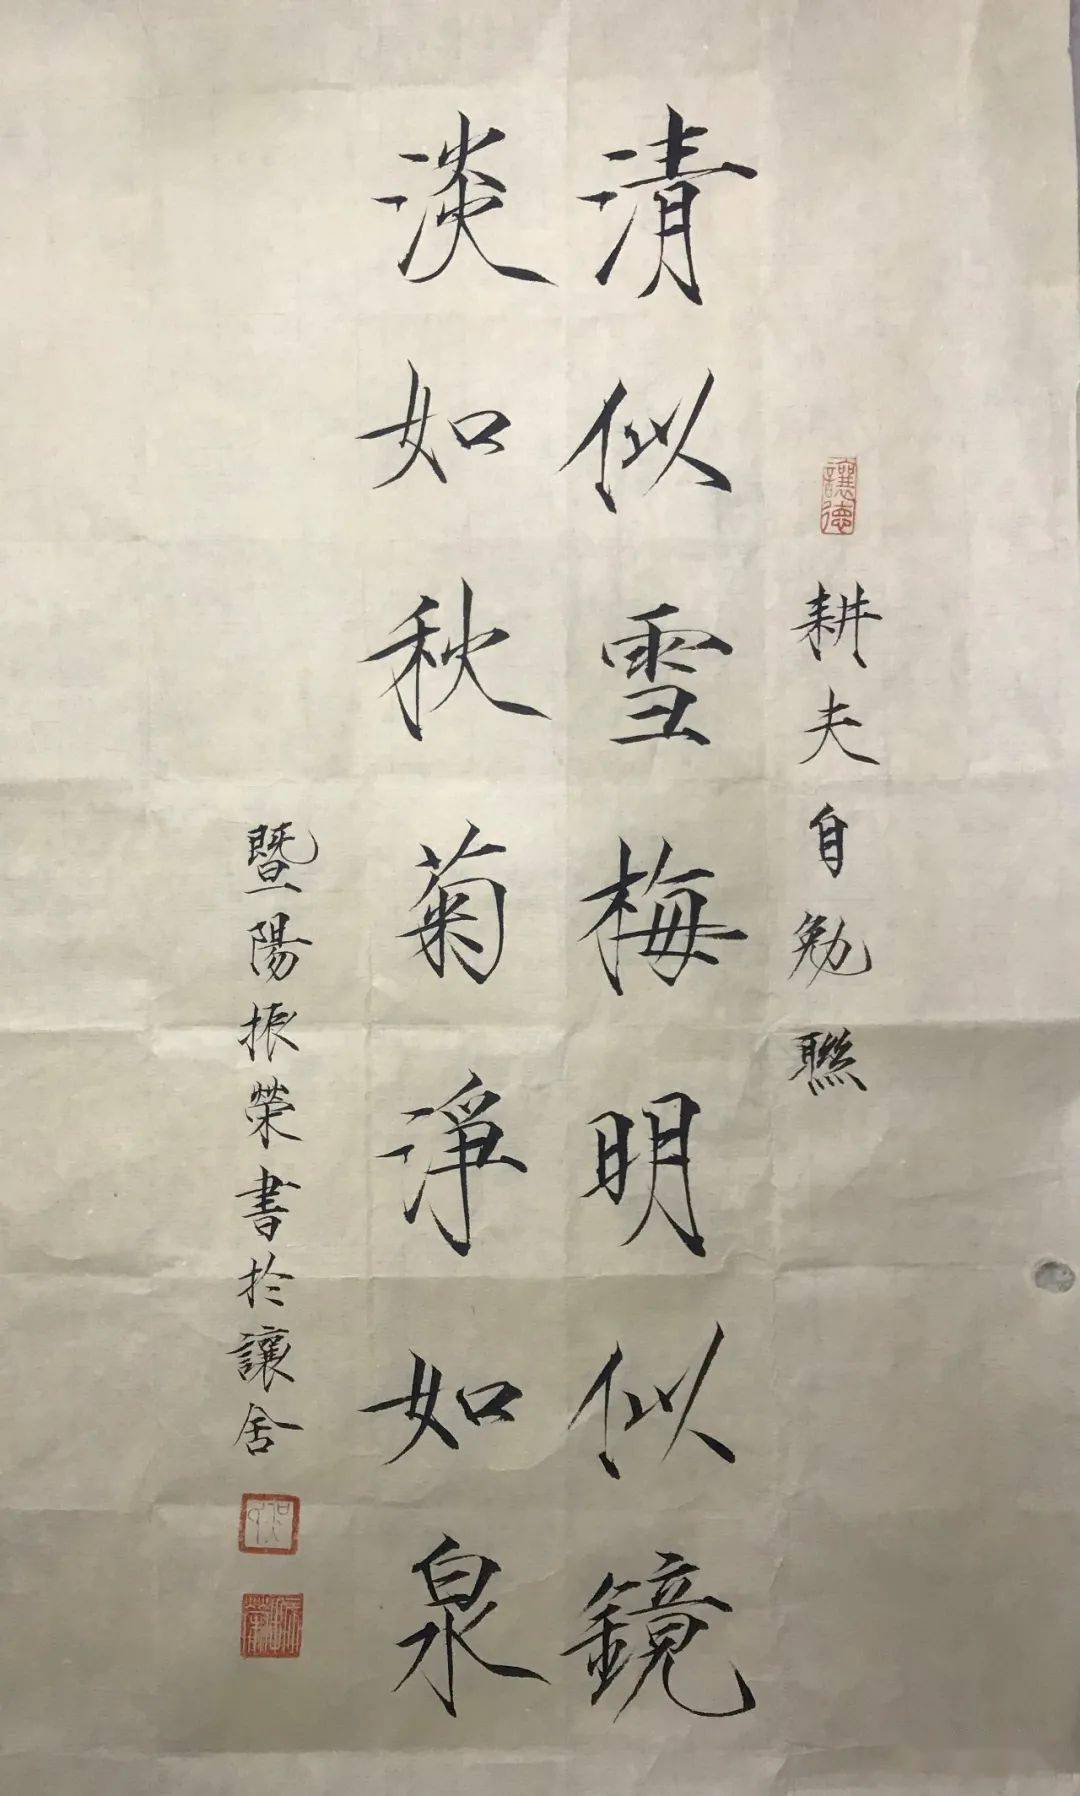 讓德
耕夫自勉聯
清似雪梅明似鏡
淡如秋菊淨如泉
暨陽振榮書於讓舍